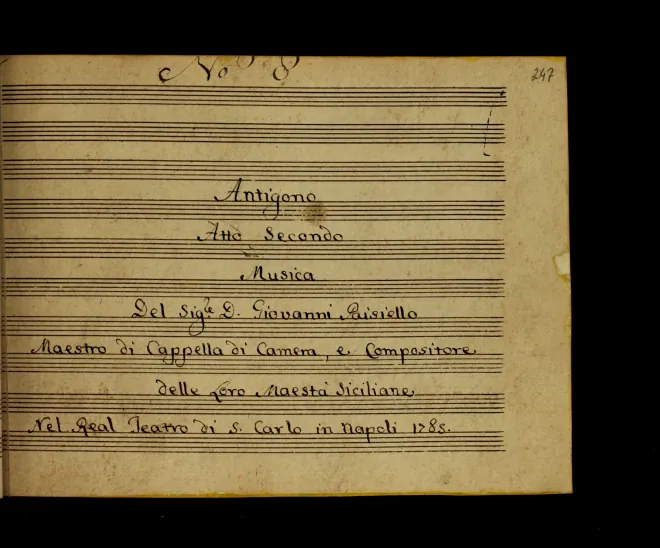 No 8
247
Antigono
Atto Secondo
Musica
Del Sig.re D. Giovanni Paisiello
Maestro di Cappella di Camera, e Compositore
delle Loro Maestà Siciliane
Nel Real Teatro di S. Carlo in Napoli 1785.